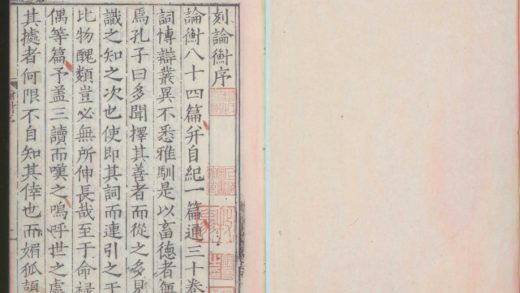 刻論衡序
論衡八十四篇并自紀一篇通三十卷
詞博辯叢異不悉雅馴是以畜德者
焉孔子曰多聞擇其善者而從之多見
識之知之次也使即其詞而連引之
比物醜類豈必無所伸長哉至于命祿
偶等篇予盖三讀而嘆之嗚呼世之處
其據者何限不自知其倖也而媚狐